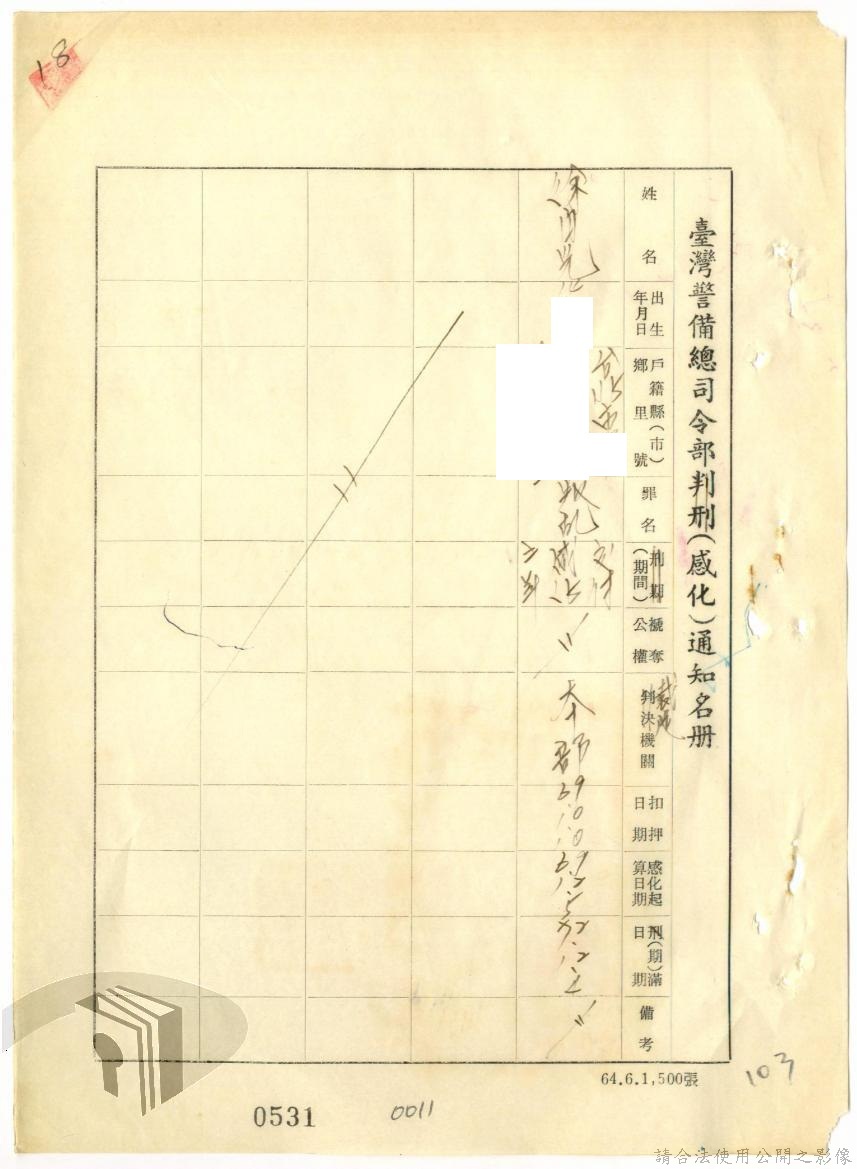 18
臺灣警備總司令部判刑（感化）通知名册
姓名
出生年月日
戶籍縣（市）鄉里號
罪名
刑期（期間）
褫奪公權
裁定
判決機關
扣押日期
感化起算日期
刑（期）滿日期
備考
徐
台北市
叛乱
交付感化三年
〃
本部
69.10.10
69.12.5
72.12.4
〃
64.6.1,500張
103
0531
0011
請合法使用公開之影像